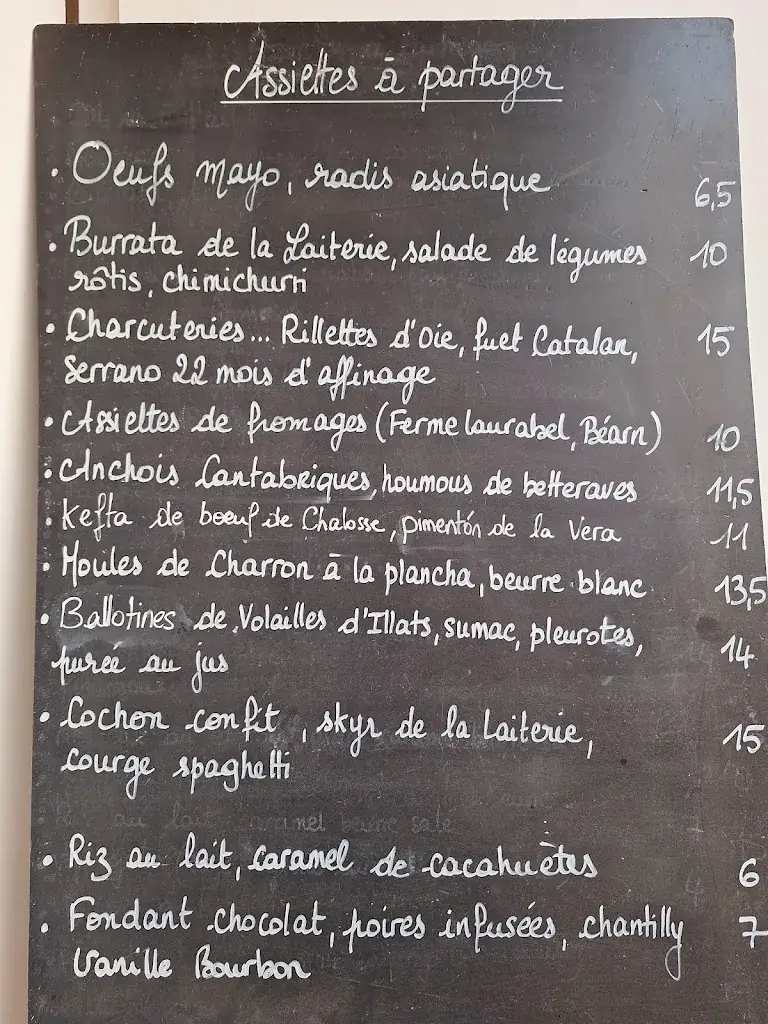 Assiettes à partager
• Oeufs mayo, radis asiatique 6,5
• Burrata de la Laiterie, salade de légumes 10
rôtis, chimichurri
• Charcuteries... Rillettes d'Oie, fuet Catalan, 15
Serrano 22 mois d'affinage
• Assiettes de fromages (Ferme Laurabel, Béarn) 10
• Anchois Cantabriques, houmous de betteraves 11,5
• Kefta de boeuf de Chalosse, pimentón de la Vera 11
• Moules de Charron à la plancha, beurre blanc 13,5
• Ballotines de Volailles d'Illats, sumac, pleurotes, 14
purée au jus
• Cochon confit, skyr de la Laiterie, 15
courge spaghetti
au lait caramel beurre salé
• Riz au lait, caramel de cacahuètes 6
• Fondant chocolat, poires infusées, chantilly 7
Vanille Bourbon